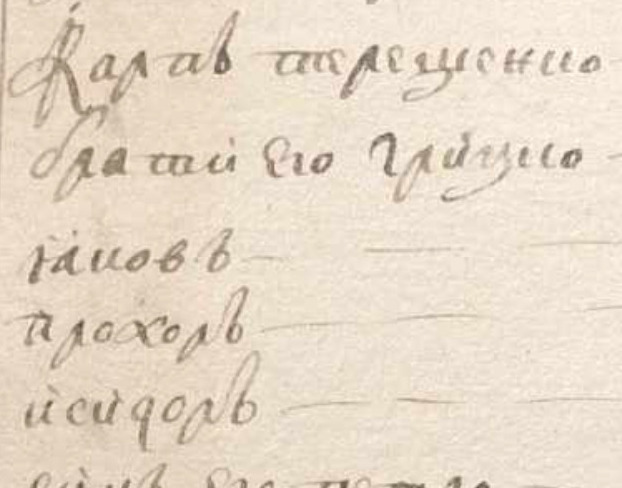 Карпъ терещенко
братй его Грицко
яковъ
прохоръ
исидоръ
его